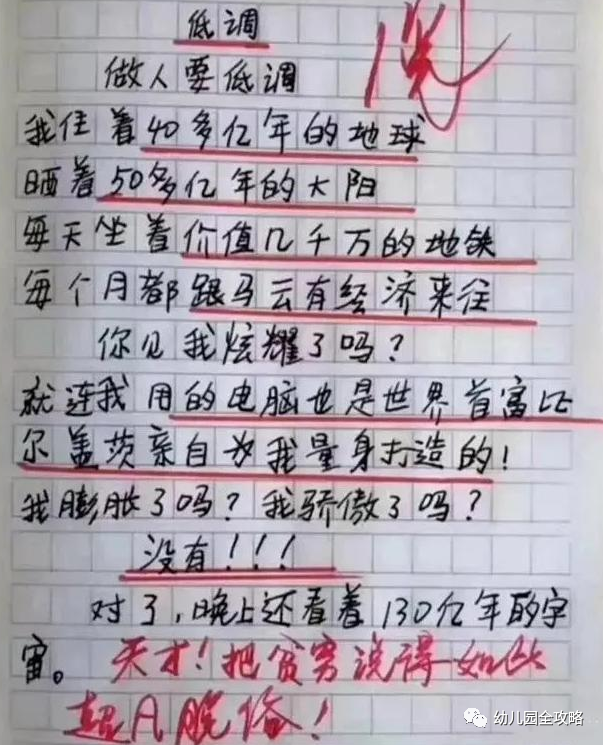 低调
做人要低调
我住着40多亿年的地球
晒着50多亿年的大阳
每天坐着价值几千万的地铁
每个月都跟马云有经济来往
你见我炫耀了吗?
就连我用的电脑也是世界首富比
尔盖茨亲自为我量身打造的!
我膨胀了吗?我骄傲了吗?
没有!!!
对了,晚上还看着130亿年的宇
宙。天才!把贫穷说得如此
超凡脱俗!
幼儿园全攻略